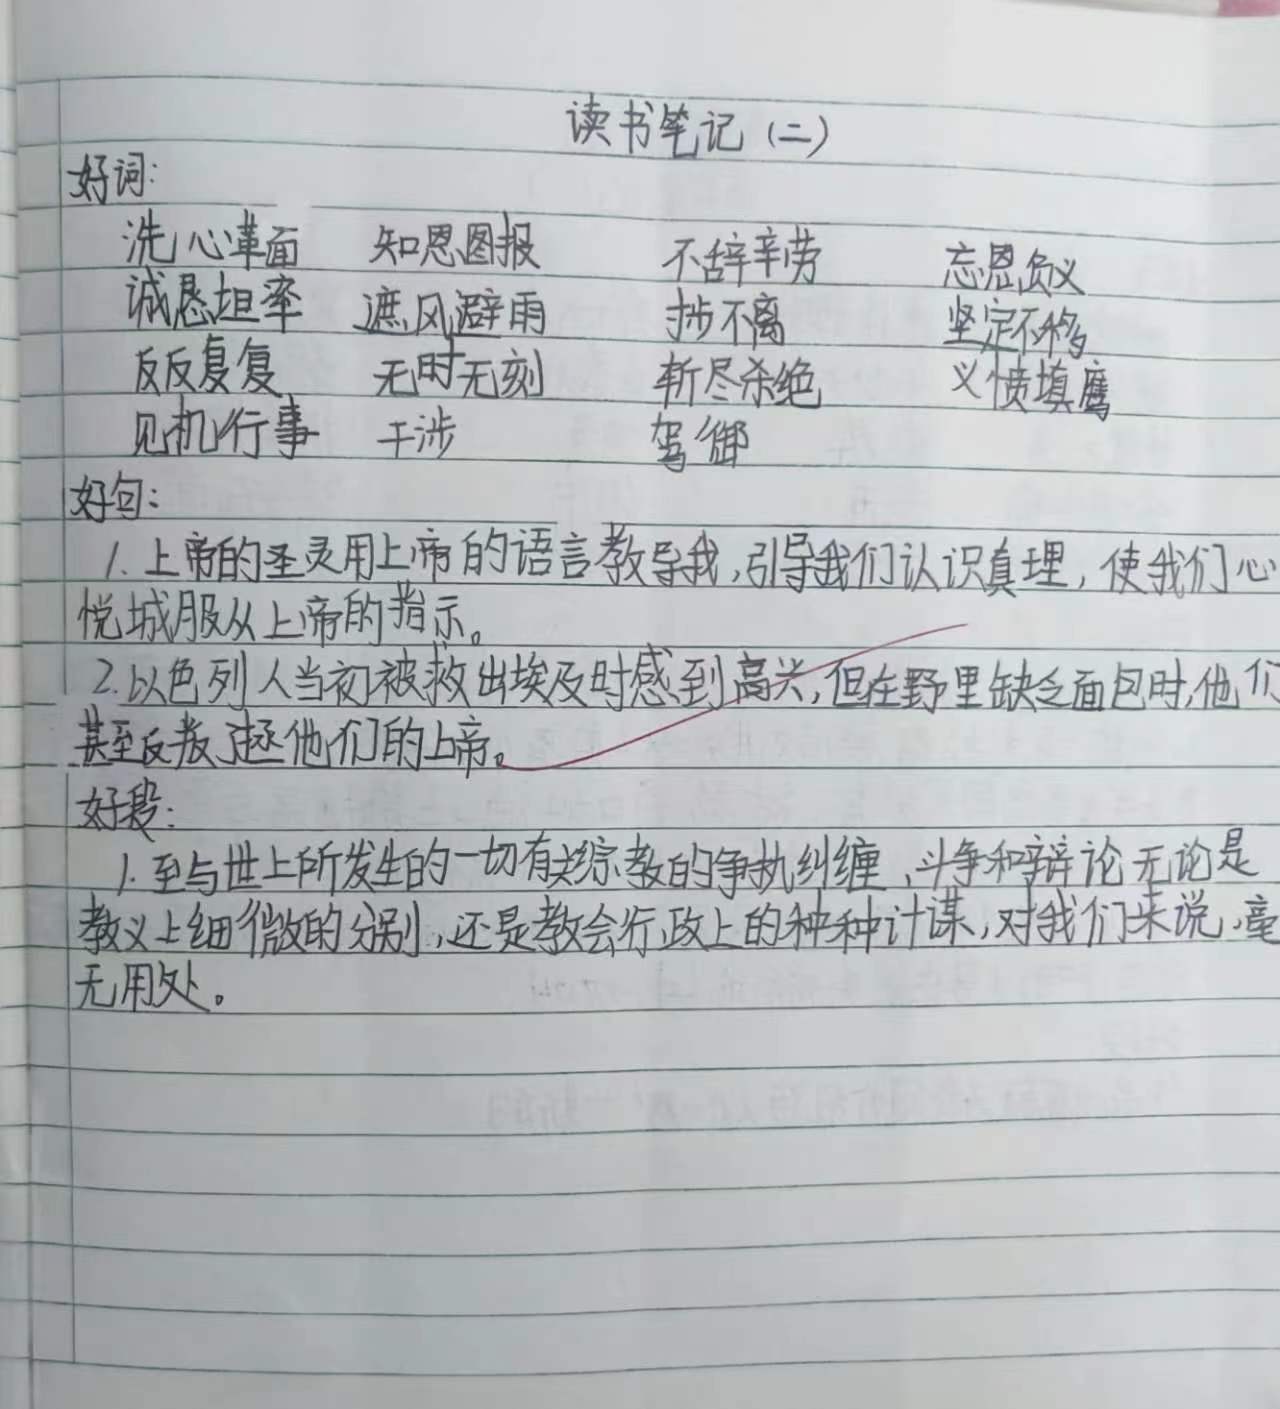 读书笔记(二)
好词:
洗心革面 知恩图报 不辞辛劳 忘恩负义
诚恳坦率 遮风避雨 抄不离 坚定不移
反反复复 无时无刻 斩尽杀绝 义愤填鹰
见机行事 干涉 驾御
好句:
1.上帝的圣灵用上帝的语言教导我,引导我们认识真理,使我们心
悦城服从上帝的指示。
2.以色列人当初被救出埃及时感到高兴,但在野里缺乏面包时,他们
甚至反叛拯他们的上帝。
好段:
1.至与世上所发生的一切有关综教的争执纠缠,斗争和辩论无论是
教义上细微的分别,还是教会行政上的种种计谋,对我们来说,毫
无用处。